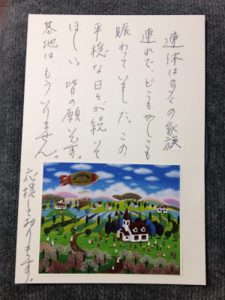 連休は多くの家族
連れで、どこもかしこも
賑わっていました。この
平穏な日々が続いて
ほしい。皆の願いです。
基地はもういりません。
応援しております。